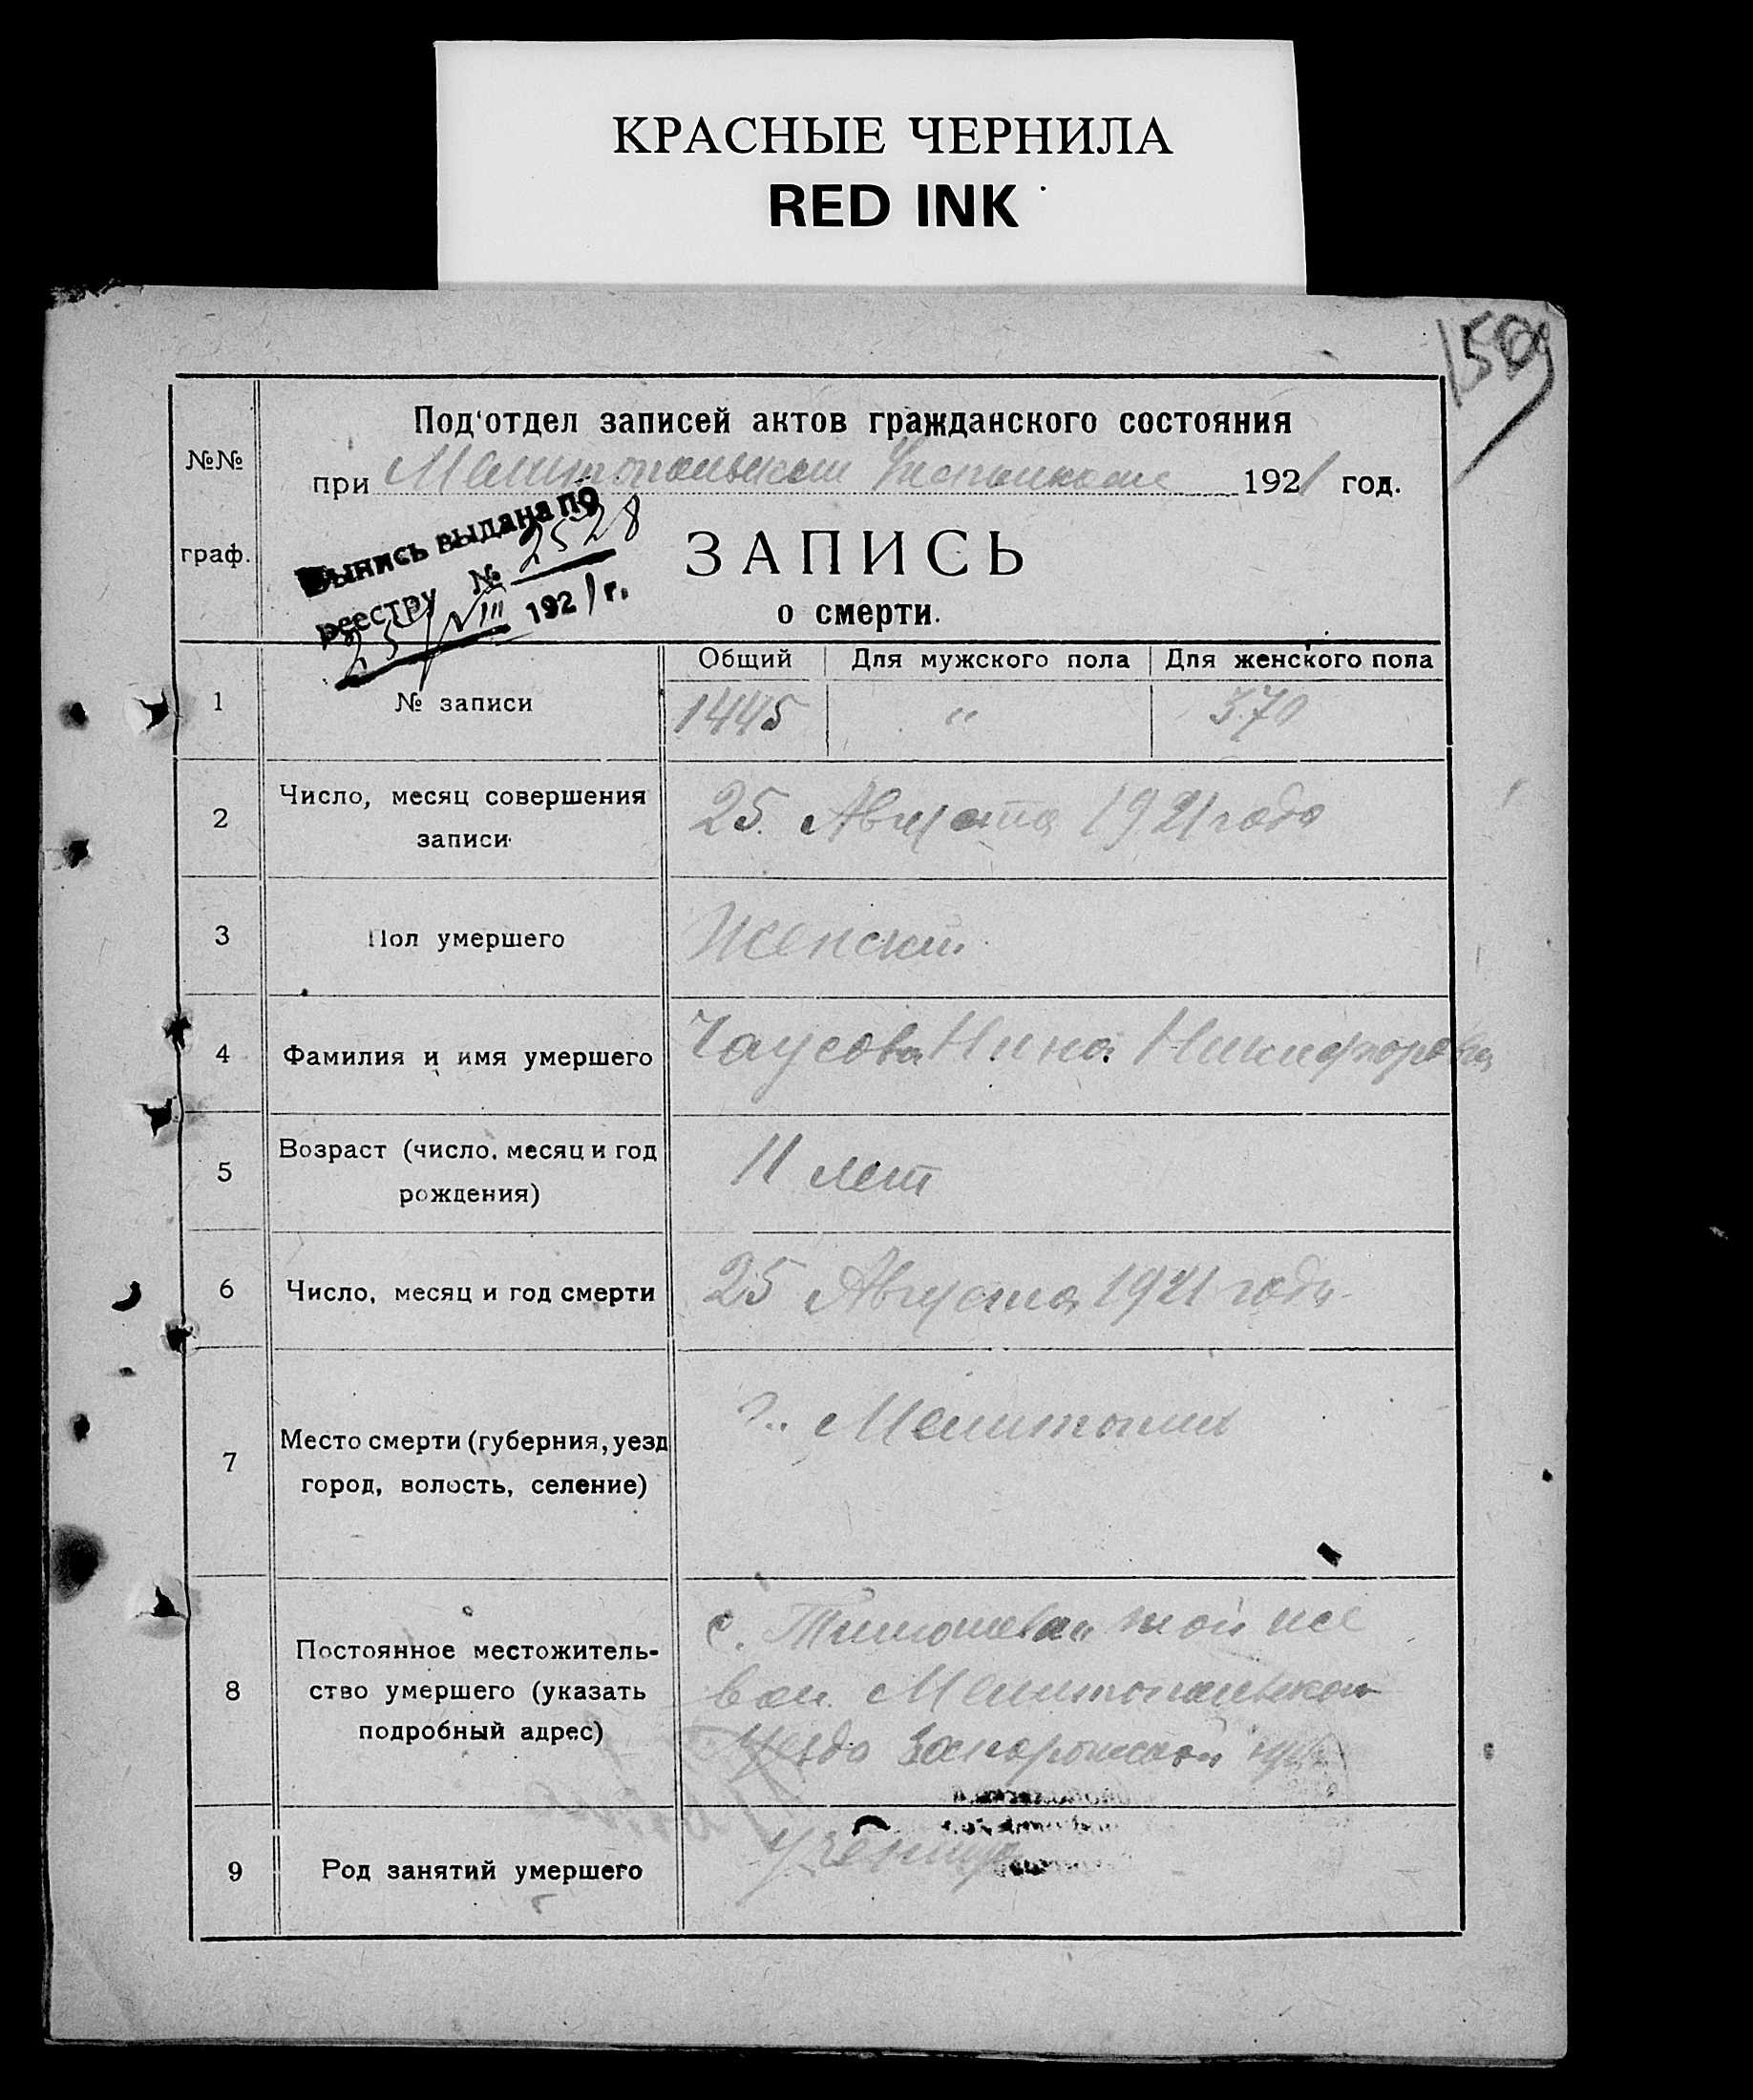 КРАСНЫЕ ЧЕРНИЛА
RED INK
1509
Под'отдел записей актов гражданского состояния
№№
граф.
при Мелитопольском 1921 год.
Выпись выдана по
реестру № 2528
25/VIII 1921 г.
ЗАПИСЬ
о смерти.
Общий Для мужского пола Для женского пола
1 № записи 1445 " 370
2 Число, месяц совершения
записи
25. Августа 1921 года
3 Пол умершего Женский
4 Фамилия и имя умершего Чаусова Нина Никифоровна
5 Возраст (число, месяц и год
рождения)
11 лет
6 Число, месяц и год смерти 25 Августа 1921 года
7 Место смерти (губерния, уезд
город, волость, селение)
г. Мелитополь
8 Постоянное местожитель-
ство умершего (указать
подробный адрес)
с. Тимошевка той же
вол. Мелитопольского
уезда Запорожской губ.
9 Род занятий умершего Ученица